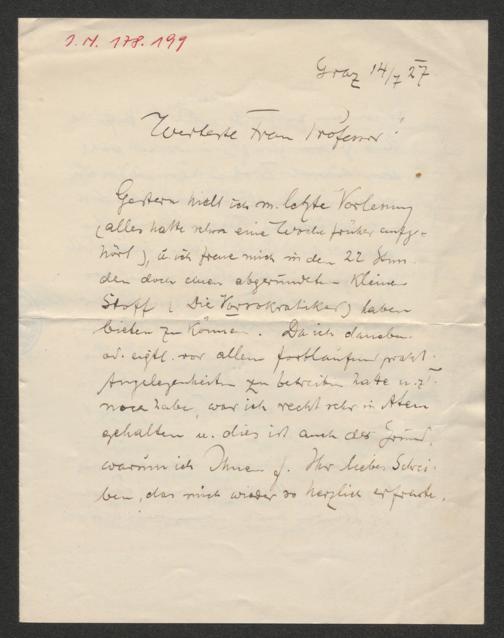 I. N. 178.199
Graz 14/7 27
Werteste Frau Professor!
Gestern hielt ich m. letzte Vorlesung
(alles hatte schon eine Woche früher aufge-
hört), u. ich freue mich in den 22 Stun-
den doch einen abgerundeten kleinen
Stoff (Die Vorsokratiker) haben
bieten zu können. Da ich daneben
od. eigtl. vor allem fortlaufend prakt.
Angelegenheiten zu betreiben hatte u. z. T.
noch habe, war ich recht sehr in Atem
gehalten u. dies ist auch der Grund,
warum ich Ihnen f. Ihr liebes Schrei-
ben, das mich wieder so herzlich erfreute,